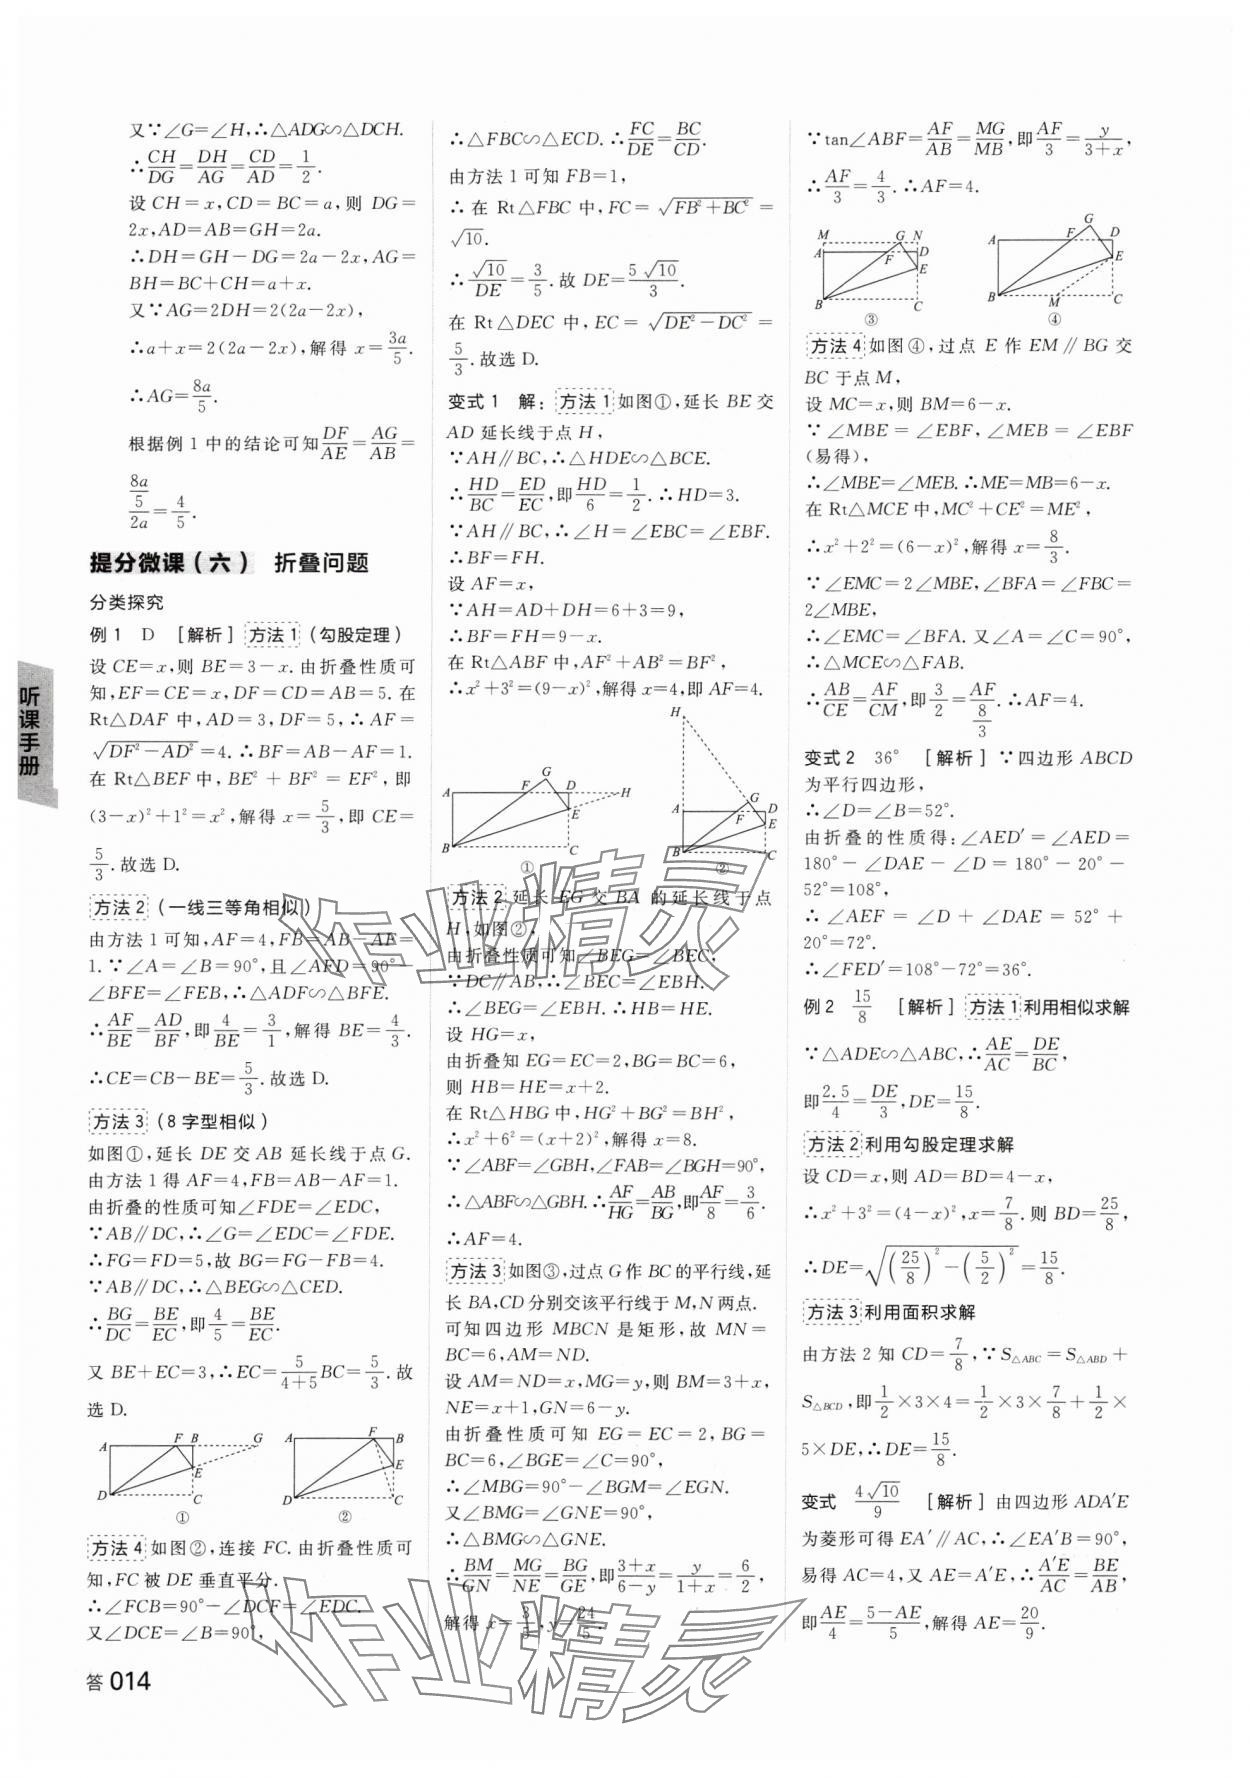 又∵∠G=∠H,∴△ADG∽△DCH.
∴CH/DG=DH/AG=CD/AD=1/2.
设 CH=x,CD=BC=a,则 DG=
2x,AD=AB=GH=2a.
∴DH=GH-DG=2a-2x,AG=
BH=BC+CH=a+x.
又∵AG=2DH=2(2a-2x),
∴a+x=2(2a-2x),解得 x=3a/5.
∴AG=8a/5.
根据例 1 中的结论可知DF/AE=AG/AB=
(8a/5)/2a=4/5.
提分微课(六) 折叠问题
分类探究
例 1 D [解析] 方法 1(勾股定理)
设 CE=x,则 BE=3-x.由折叠性质可
知,EF=CE=x,DF=CD=AB=5.在
Rt△DAF 中,AD=3,DF=5,∴AF=
√(DF²-AD²)=4.∴BF=AB-AF=1.
在 Rt△BEF 中,BE²+BF²=EF²,即
(3-x)²+1²=x²,解得 x=5/3,即 CE=
5/3.故选 D.
方法 2(一线三等角相似)
由方法 1 可知,AF=4,FB=AB-AF=
1.∵∠A=∠B=90°,且∠AFD=90°-
∠BFE=∠FEB,∴△ADF∽△BFE.
∴AF/BE=AD/BF,即4/BE=3/1,解得 BE=4/3.
∴CE=CB-BE=5/3.故选 D.
方法 3(8 字型相似)
如图①,延长 DE 交 AB 延长线于点 G.
由方法 1 得 AF=4,FB=AB-AF=1.
由折叠的性质可知∠FDE=∠EDC,
∵AB∥DC,∴∠G=∠EDC=∠FDE.
∴FG=FD=5,故 BG=FG-FB=4.
∵AB∥DC,∴△BEG∽△CED.
∴BG/DC=BE/EC,即4/5=BE/EC.
又 BE+EC=3,∴EC=5/(4+5)BC=5/3.故
选 D.
A F B G E D C
①
A F B E D C
②
方法 4 如图②,连接 FC.由折叠性质可
知,FC 被 DE 垂直平分.
∴∠FCB=90°-∠DCF=∠EDC.
又∠DCE=∠B=90°,
∴△FBC∽△ECD.∴FC/DE=BC/CD.
由方法 1 可知 FB=1,
∴在 Rt△FBC 中,FC=√(FB²+BC²)=
√10.
∴√10/DE=3/5.故 DE=5√10/3.
在 Rt△DEC 中,EC=√(DE²-DC²)=
5/3.故选 D.
变式 1 解:方法 1 如图①,延长 BE 交
AD 延长线于点 H,
∵AH∥BC,∴△HDE∽△BCE.
∴HD/BC=ED/EC,即HD/6=1/2.∴HD=3.
∵AH∥BC,∴∠H=∠EBC=∠EBF.
∴BF=FH.
设 AF=x,
∵AH=AD+DH=6+3=9,
∴BF=FH=9-x.
在 Rt△ABF 中,AF²+AB²=BF²,
∴x²+3²=(9-x)²,解得 x=4,即 AF=4.
G A F D H E B C
①
H G A F D E B C
②
方法 2 延长 EG 交 BA 的延长线于点
H,如图②,
由折叠性质可知∠BEG=∠BEC,
∵DC∥AB,∴∠BEC=∠EBH.
∴∠BEG=∠EBH.∴HB=HE.
设 HG=x,
由折叠知 EG=EC=2,BG=BC=6,
则 HB=HE=x+2.
在 Rt△HBG 中,HG²+BG²=BH²,
∴x²+6²=(x+2)²,解得 x=8.
∵∠ABF=∠GBH,∠FAB=∠BGH=90°,
∴△ABF∽△GBH.∴AF/HG=AB/BG,即AF/8=3/6.
∴AF=4.
方法 3 如图③,过点 G 作 BC 的平行线,延
长 BA,CD 分别交该平行线于 M,N 两点.
可知四边形 MBCN 是矩形,故 MN=
BC=6,AM=ND.
设 AM=ND=x,MG=y,则 BM=3+x,
NE=x+1,GN=6-y.
由折叠性质可知 EG=EC=2,BG=
BC=6,∠BGE=∠C=90°,
∴∠MBG=90°-∠BGM=∠EGN.
又∠BMG=∠GNE=90°,
∴△BMG∽△GNE.
∴BM/GN=MG/NE=BG/GE,即(3+x)/(6-y)=y/(1+x)=6/2,
解得 x=3/5,y=24/5.
∵tan∠ABF=AF/AB=MG/MB,即AF/3=y/(3+x),
∴AF/3=4/3.∴AF=4.
M G N A F D E B C
③
G A F D E B M C
④
方法 4 如图④,过点 E 作 EM∥BG 交
BC 于点 M,
设 MC=x,则 BM=6-x.
∵∠MBE=∠EBF,∠MEB=∠EBF
(易得),
∴∠MBE=∠MEB.∴ME=MB=6-x.
在 Rt△MCE 中,MC²+CE²=ME²,
∴x²+2²=(6-x)²,解得 x=8/3.
∵∠EMC=2∠MBE,∠BFA=∠FBC=
2∠MBE,
∴∠EMC=∠BFA.又∠A=∠C=90°,
∴△MCE∽△FAB.
∴AB/CE=AF/CM,即3/2=AF/(8/3).∴AF=4.
变式 2 36° [解析] ∵四边形 ABCD
为平行四边形,
∴∠D=∠B=52°.
由折叠的性质得:∠AED′=∠AED=
180°-∠DAE-∠D=180°-20°-
52°=108°,
∴∠AEF=∠D+∠DAE=52°+
20°=72°.
∴∠FED′=108°-72°=36°.
例 2 15/8 [解析] 方法 1 利用相似求解
∵△ADE∽△ABC,∴AE/AC=DE/BC,
即2.5/4=DE/3,DE=15/8.
方法 2 利用勾股定理求解
设 CD=x,则 AD=BD=4-x,
∴x²+3²=(4-x)²,x=7/8.则 BD=25/8,
∴DE=√((25/8)²-(5/2)²)=15/8.
方法 3 利用面积求解
由方法 2 知 CD=7/8,∵S△ABC=S△ABD+
S△BCD,即1/2×3×4=1/2×3×7/8+1/2×
5×DE,∴DE=15/8.
变式 4√10/9 [解析] 由四边形 ADA′E
为菱形可得 EA′∥AC,∴∠EA′B=90°,
易得 AC=4,又 AE=A′E,∴A′E/AC=BE/AB,
即AE/4=(5-AE)/5,解得 AE=20/9.
听课手册
答 014
作业精灵
作业精灵